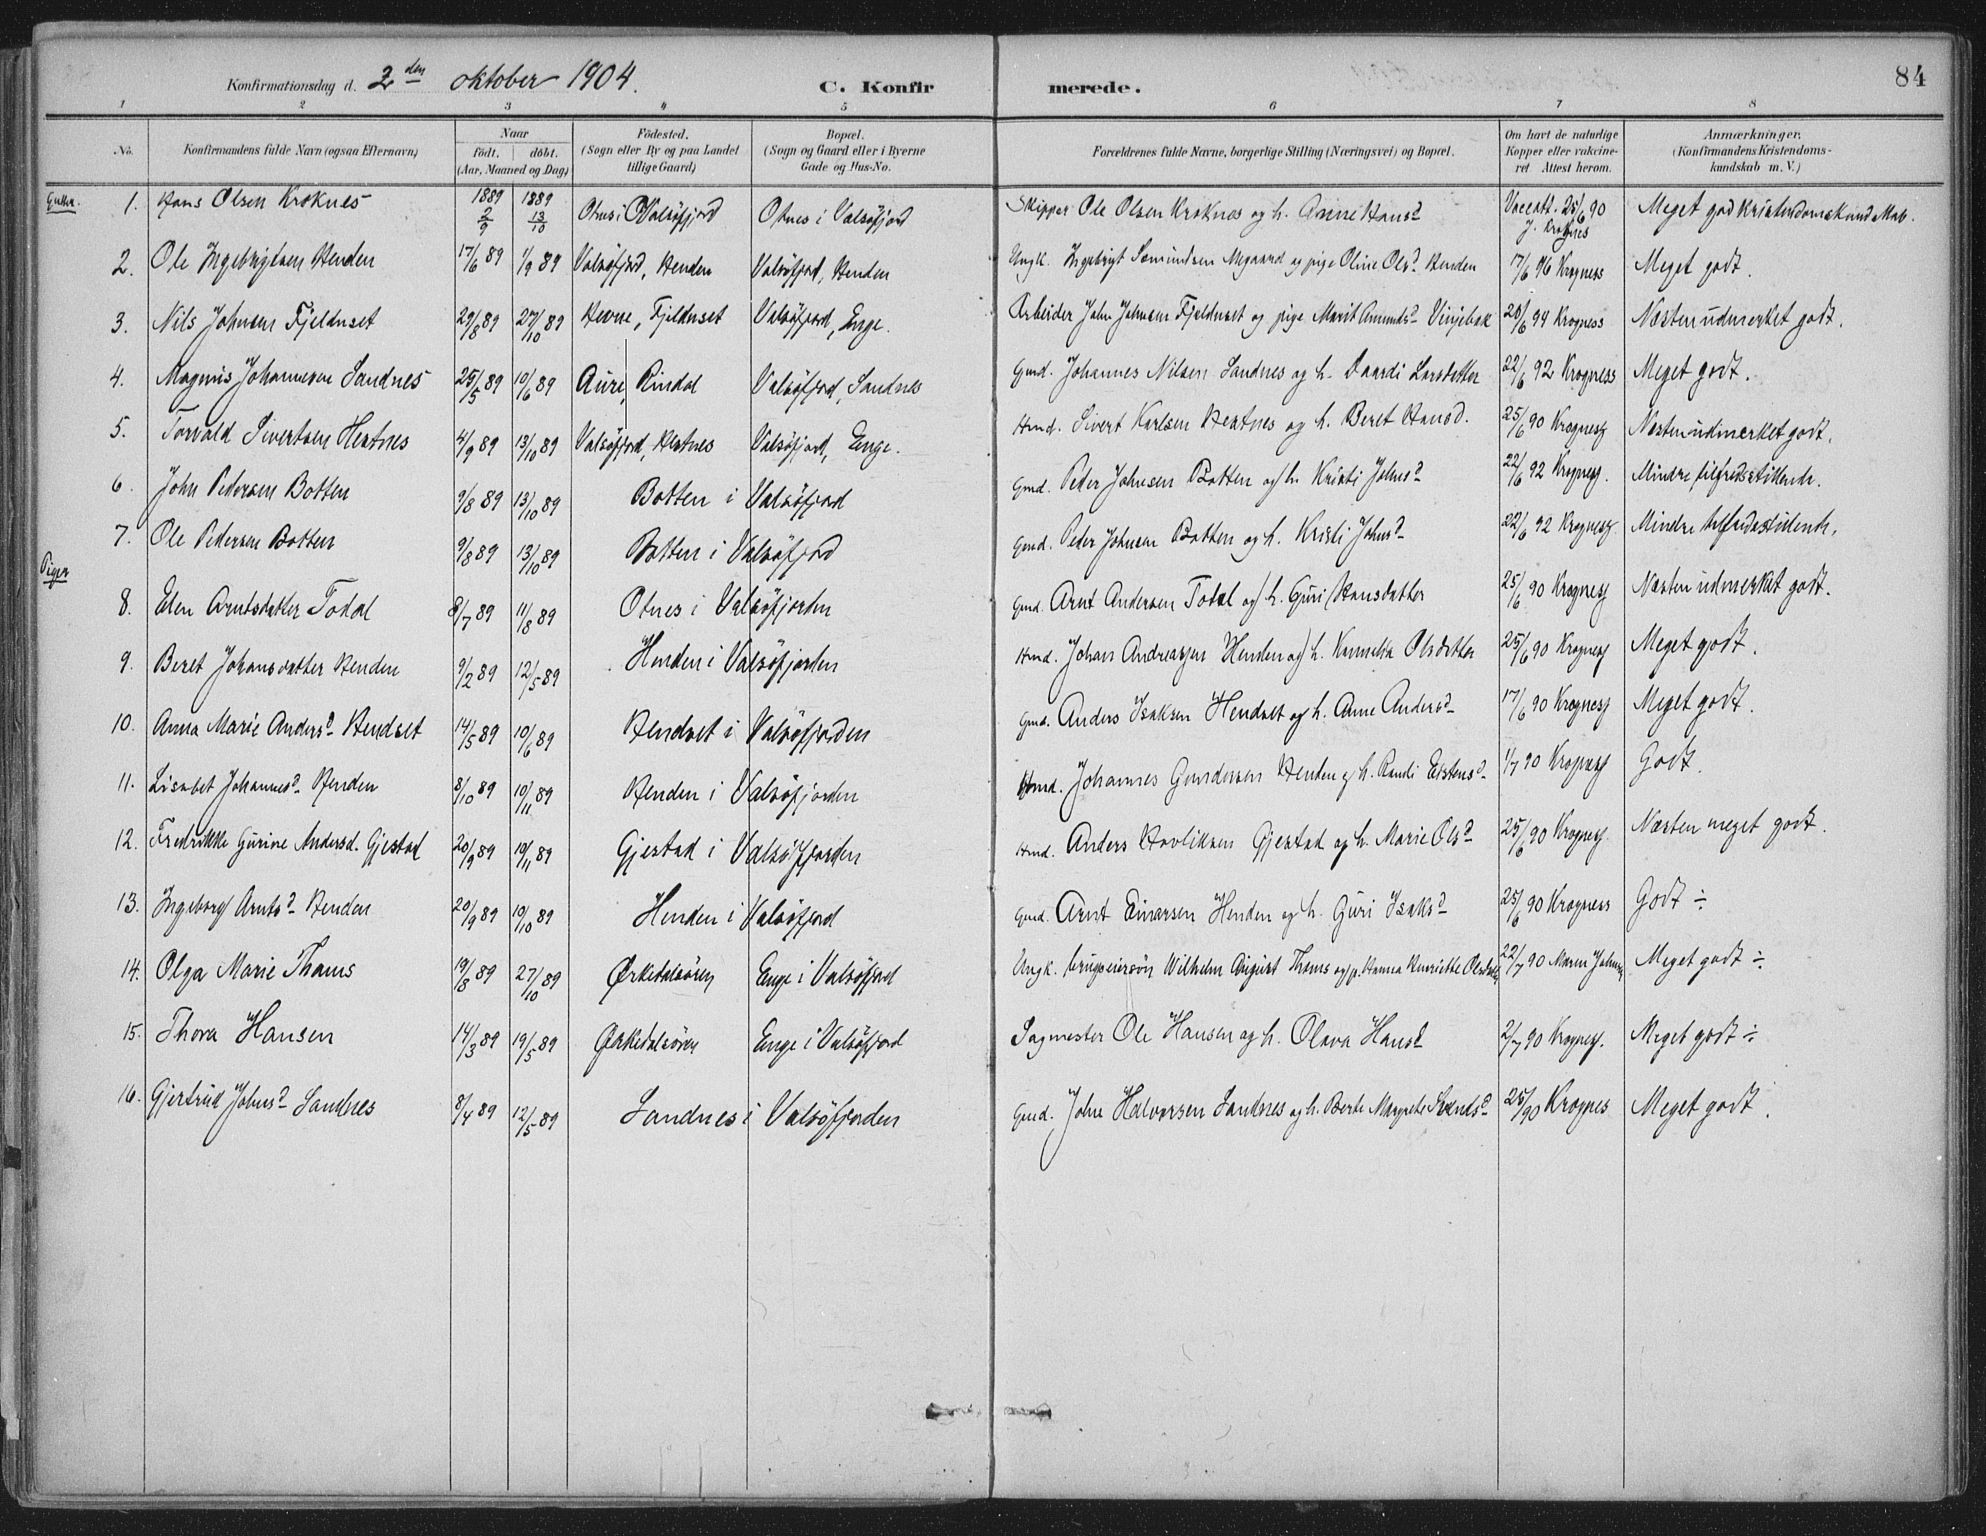 Konfirmationsdag d. 2den oktober 1904. C. Konfirmerede. 84
1 2 3 4 5 6 7 8
No. Konfirmandens fulde Navn (ogsaa Efternavn) Naar født. døbt. (Aar, Maaned og Dag) Fødested. (Sogn eller By og paa Landet tillige Gaard) Bopæl. (Sogn og Gaard eller i Byerne Gade og Hus-No. Forældrenes fulde Navne, borgerlige Stilling (Næringsvei) og Bopæl. Om havt de naturlige Kopper eller vaccineret Attest herom. Anmærkninger. (Konfirmandens Kristendomskundskab m. V.)
1. Hans Olsen Kroknes 1889 2/9 1889 13/10 Otnes i Valsøfjord Otnes i Valsøfjord Skipper Ole Olsen Kroknes og h. Anne Hansd Vacc.att. 25/6 90 J. Krognes Meget god kristendomskundskab.
2. Ole Ingebrigtsen Henden 17/6 89 1/9 89 Valsøfjord, Henden Valsøfjord, Henden Ungk. Ingebrigt Semundsen Megaard og pige Oline Olsd Henden 17/6 96 Krogness Meget godt.
3. Nils Johnsen Fjeldnset 29/8 89 27/10 89 Hevne, Fjeldnset Valsøfjord, Enge. Arbeider John Johnsen Fjeldnset og pige Marit Amundsd Vinjebak 20/6 94 Krogness Næsten udmerket godt.
4. Magnus Johannesen Sandnes 25/5 89 10/6 89 Aure, Rindal Valsøfjord, Sandnes Gmd. Johannes Nilsen Sandnes og h. Daardi Larsdatter 22/6 92 Krogness Meget godt.
5. Torvald Sivertsen Hestnes 4/9 89 13/10 89 Valsøfjord, Hestnes Valsøfjord, Enge. Hmd. Sivert Karlsen Hestnes og h. Beret Hansd. 25/6 90 Krogness Næsten udmerket godt.
6. John Pedersen Botten 9/8 89 13/10 89 Botten i Valsøfjord Gmd. Peder Johnsen Botten og h. Kristi Johnsd 22/6 92 Krogness. Mindre tilfredsstillende.
7. Ole Pedersen Botten 9/8 89 13/10 89 Botten i Valsøfjord Gmd. Peder Johnsen Botten og h. Kristi Johnsd 22/6 92 Krogness Mindre tilfredsstillende.
Piger
8. Elen Arntsdatter Todal 8/7 89 11/8 89 Otnes i Valsøfjorden Gmd. Arnt Andersen Todal og h. Guri Hansdatter 25/6 90 Krogness Næsten udmerket godt.
9. Beret Johansdatter Henden 9/2 89 12/5 89 Henden i Valsøfjorden Hmd. Johan Andreassen Henden og h. Olsdatter 25/6 90 Krogness Meget godt.
10. Anna Marie Andersd Hendset 14/5 89 10/6 89 Hendset i Valsøfjorden Gmd. Anders Isaksen Hendset og h. Anne Andersd 17/6 90 Krogness Meget godt.
11. Lisabet Johannesd Henden 8/10 89 10/11 89 Henden i Valsøfjorden Hmd. Johannes Gundersen Henden og h. Randi Eistensd 1/7 90 Krogness Godt.
12. Fredrikke Gurine Andersd. Gjestad 20/9 89 10/11 89 Gjestad i Valsøfjorden Hmd. Anders Havliksen Gjestad og h. Marie Olsd 25/6 90 Krogness. Næsten meget godt.
13. Ingeborg Arntsd Henden 20/9 89 10/10 89 Henden i Valsøfjord Gmd. Arnt Einarsen Henden og h. Guri Isaksd 25/6 90 Krogness Godt ÷
14. Olga Marie Thams 19/8 89 27/10 89 Ørkedalsøren Enge i Valsøfjord Ungk. brugseiersøn Wilhelm August Thams og p. Hanna Henriette Olsdatter 22/7 90 Maren Johnsen Meget godt ÷
15. Thora Hansen 14/3 89 19/5 89 Ørkedalsøren Enge i Valsøfjord Sagmester Ole Hansen og h. Olava Hansd 2/7 90 Krogness. Meget godt ÷
16. Gjertrud Johnsd Sandnes 8/4 89 12/5 89 Sandnes i Valsøfjorden Gmd. John Halvorsen Sandnes og h. Berte Margrete Svendsd 25/6 90 Krognes Meget godt.